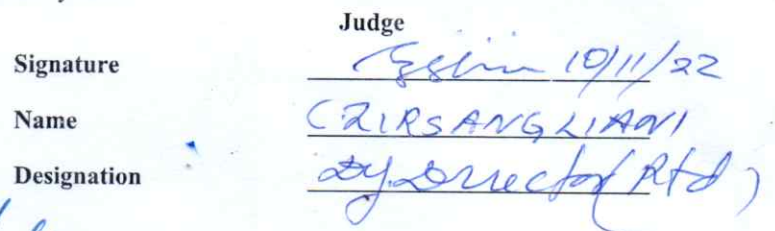 Judge
Signature 10/11/22
Name C ZIRSANGLIANI
Designation Dy. Director (Rtd)